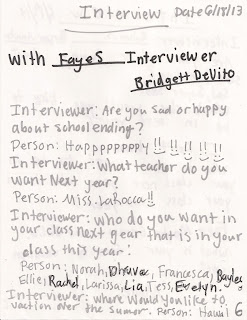 Interview Date 6/18/13
with Faye S Interviewer
Bridgett DeVito
Interviewer: Are you sad or happy
about school ending?
Person: Happppppppy!!!!!!
Interviewer: What teacher do you
want Next year?
Person: Miss. LaRocca!!
Interviewer: who do you want in
your class next gear that is in your
class this year?
Person: Norah, Dhruva, Francesca, Baylee,
Ellie, Rachel, Larissa, Lia, Tess, Evelyn.
Interviewer: where would you like to
vaction over the sumor. Person: Hawii 6